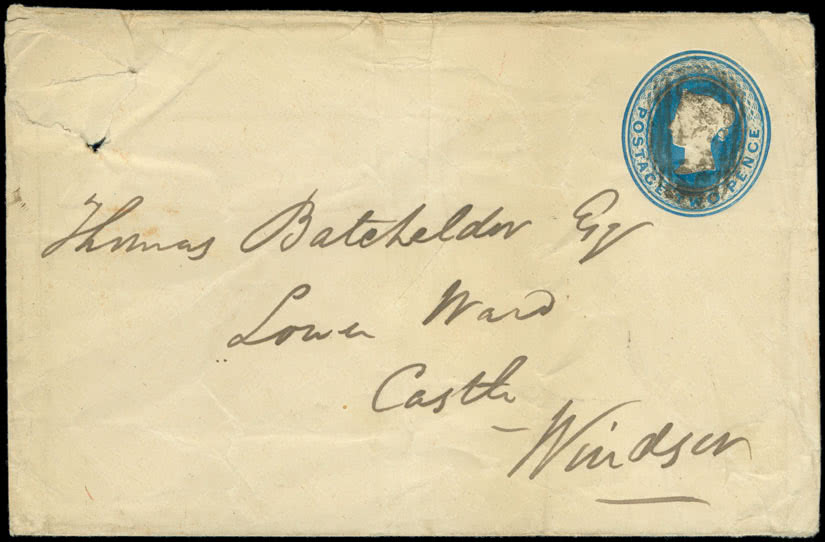 POSTAGE TWO PENCE
Thomas Batchelder Esq
Lower Ward
Castle
Windsor